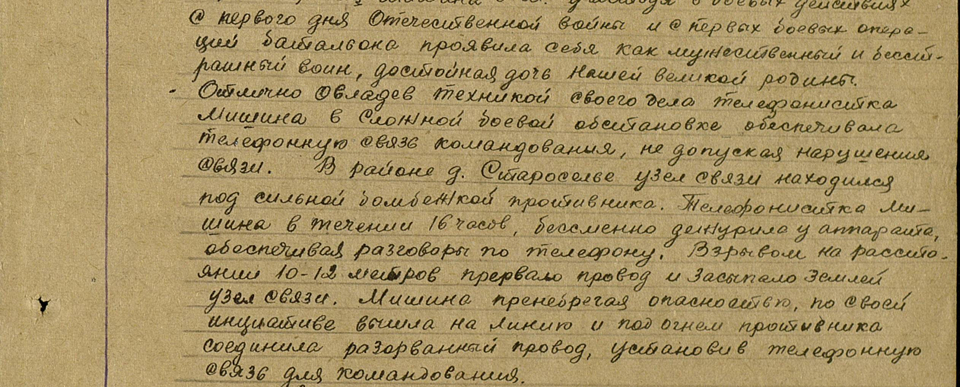 участвуя в боевых действиях
с первого дня Отечественной войны и с первых боевых опера-
ций батальона проявила себя как мужественный и бесст-
рашный воин, достойная дочь нашей великой родины.
Отлично овладев техникой своего дела телефонистка
Мишина в сложной боевой обстановке обеспечивала
телефонную связь командования, не допуская нарушения
связи. В районе д. Староселье узел связи находился
под сильной бомбежкой противника. Телефонистка Ми-
шина в течении 16 часов, бессменно дежурила у аппарата,
обеспечивая разговоры по телефону. Взрывом на рассто-
янии 10-12 метров прервало провод и засыпало землей
узел связи. Мишина пренебрегая опасностью, по своей
инциативе вышла на линию и под огнем противника
соединила разорванный провод, установив телефонную
связь для командования.